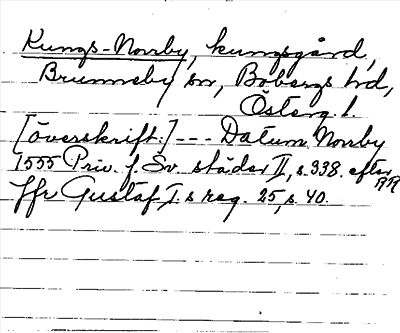 Kungs-Norrby, kungsgård,
Brunneby sn, Bobergs hd,
Österg. l.
[överskrift:] --- Datum Norrby
1555 Priv. f. Sv. städer II, s. 338. efter RR
Jfr Gustaf I:s reg. 25, s. 40.